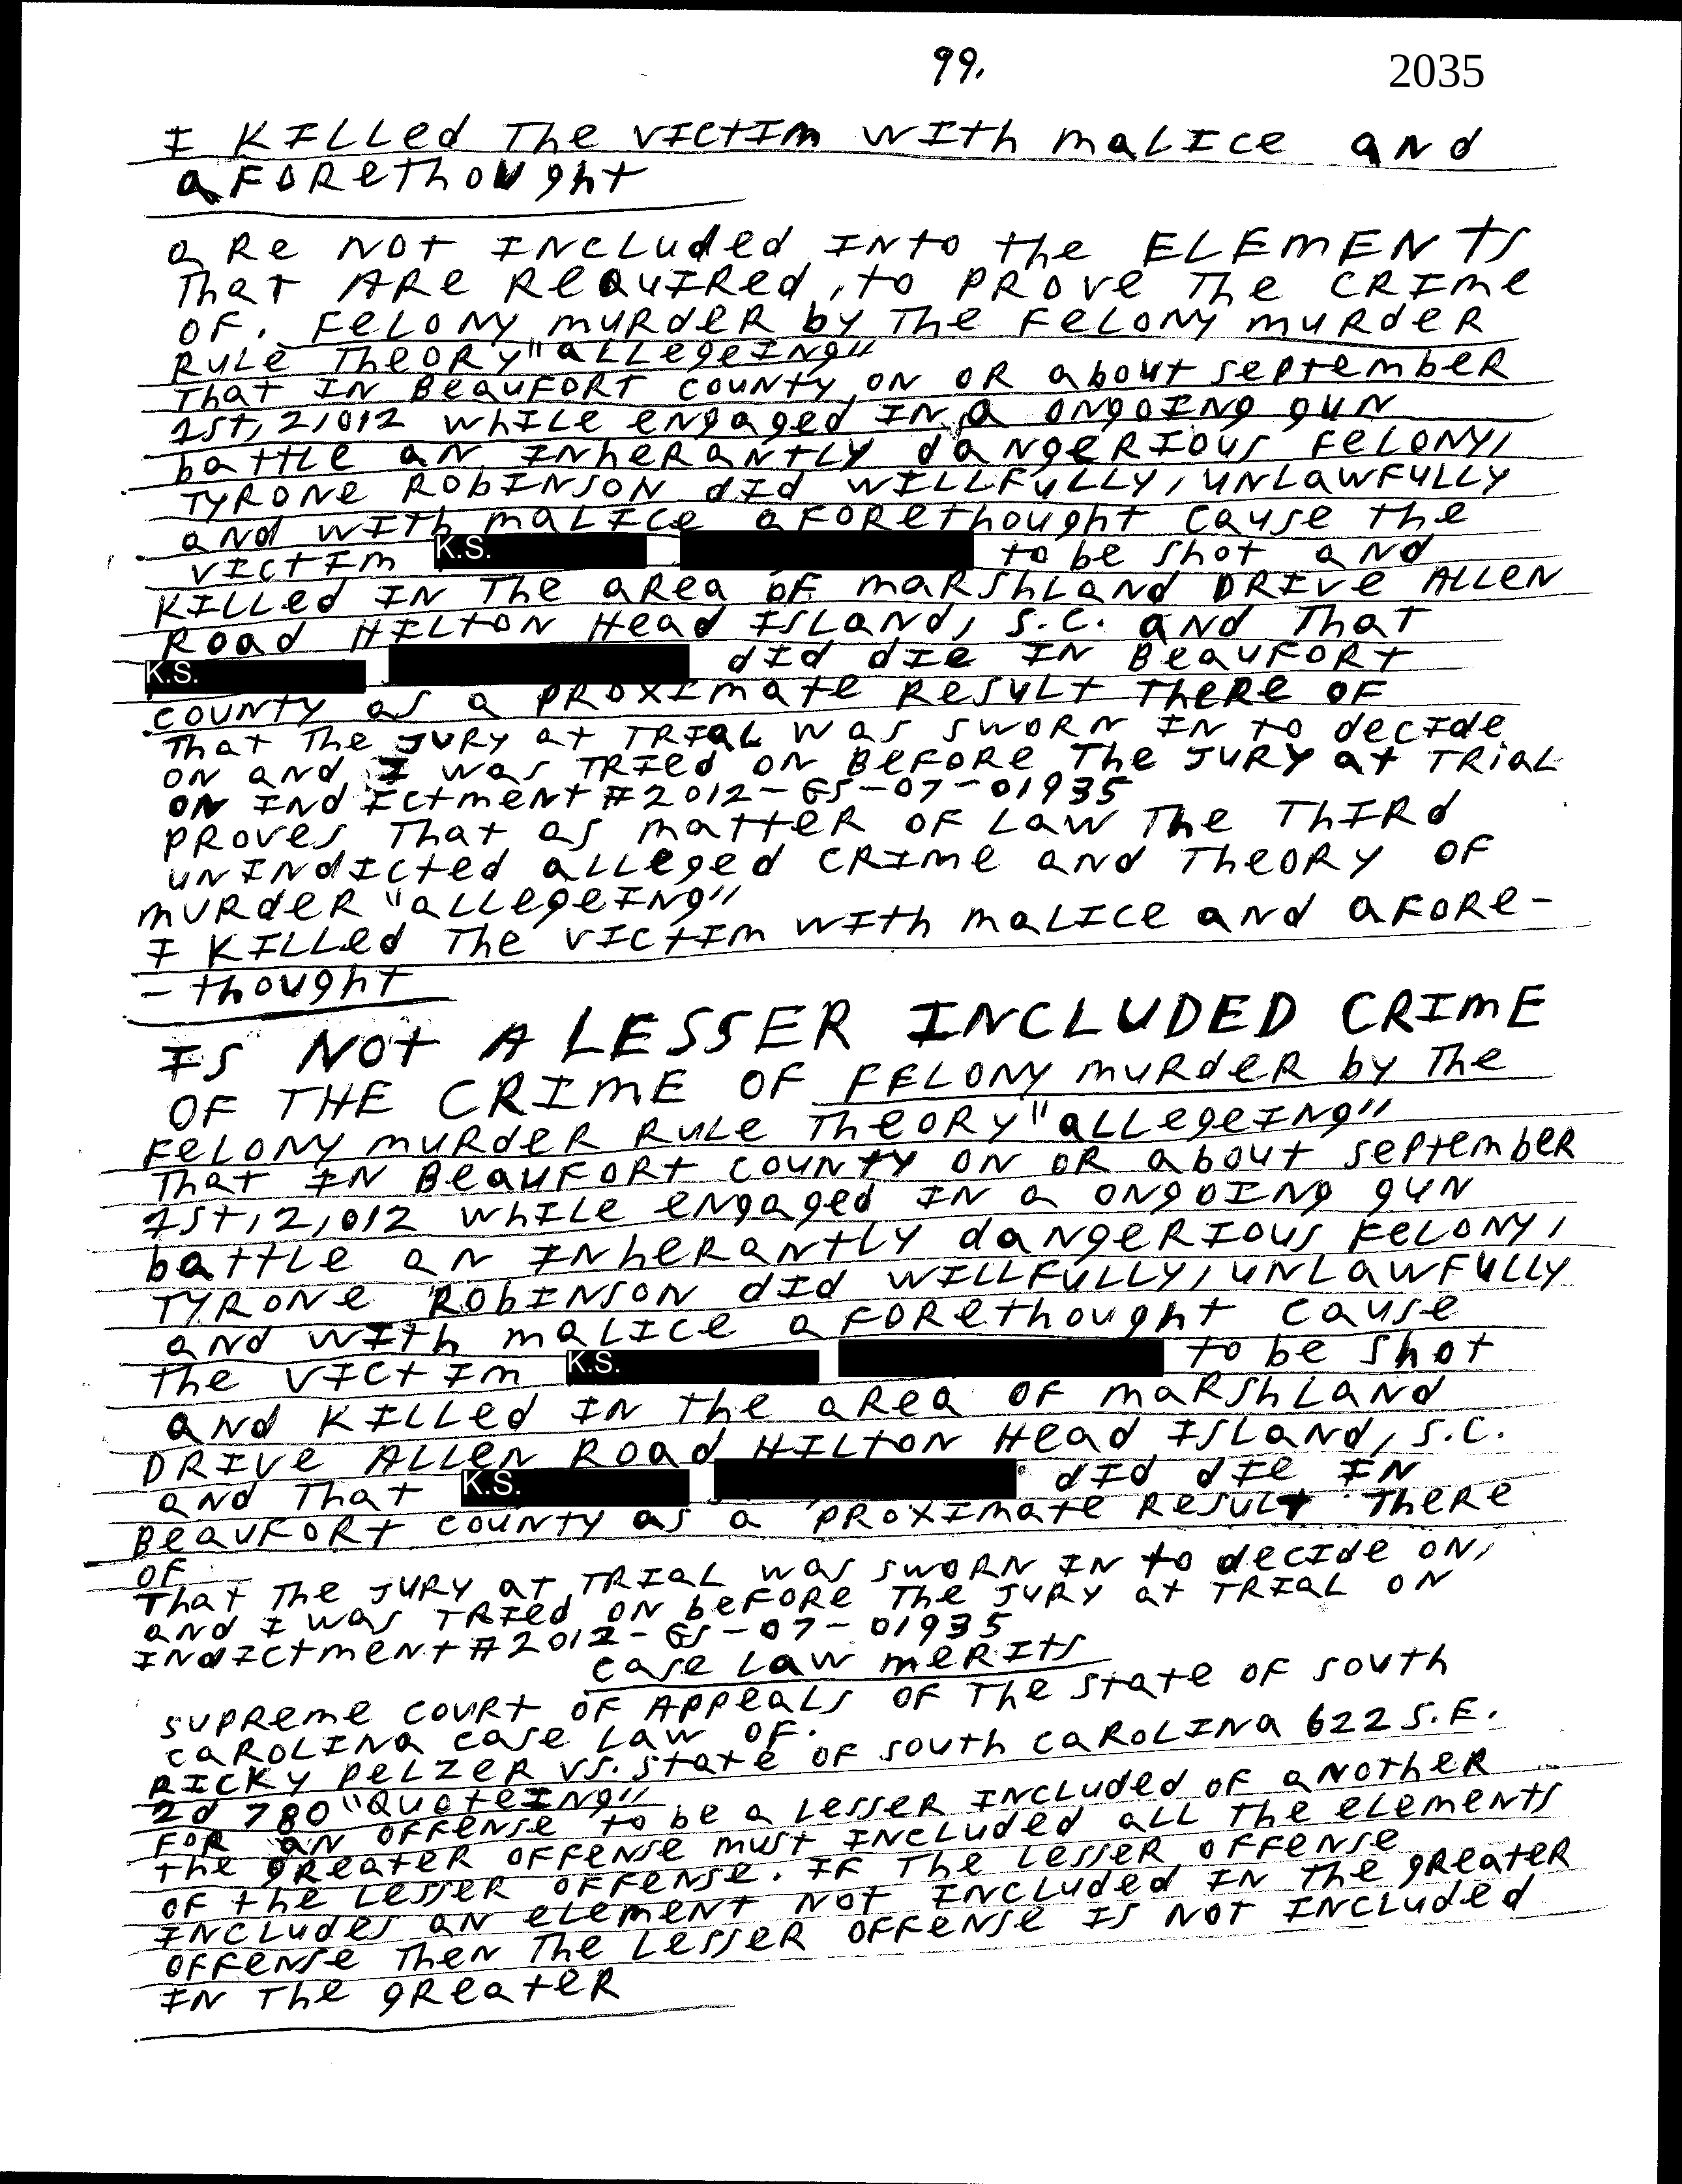 99. 2035
I KILLed The VICtIm WITh maLIce aNd
aFOReThOught
aRe NOT INCLuded INto the ELEmENTS
That ARe ReQuIRed, to PROve The CRIme
OF. FeLONy muRdeR by The FeLONy muRdeR
RuLe TheORy "aLLegeINg"
That IN BeauFORT COuNty ON OR about SePtembeR
1St, 2,012 whILe eNgaged IN a ONgOINg guN
battLe aN INheRaNtLy daNgeRIOuS FeLONy,
TyRONe RObINSON dId WILLFuLLy, uNLawFuLLy
aNd wITh maLIce aFOReThOught cauSe the
VICtIm K.S. to be ShOt aNd
KILLed IN The aRea OF maRShLaNd DRIve ALLeN
ROad HILtON Head ISLaNd, S.C. aNd That
K.S. dId dIe IN BeauFORt
COuNty aS a PROxImate ReSuLt TheRe OF
That The JuRy at TRIaL waS SwORN IN to decIde
ON aNd I waS TRIed ON BeFORe The JuRy at TRIaL
ON INdIctmeNt #2012-GS-07-01935
PROveS That aS matteR OF Law The ThIRd
uNINdIcted aLLeged CRIme aNd TheORy OF
muRdeR "aLLegeINg"
I KILLed The VICtIm wITh maLIce aNd aFORe-
-thOught
IS NOt A LESSER INCLUDED CRImE
OF THE CRIME OF FELONy muRdeR by The
FeLONy muRdeR RuLe TheORy "aLLegeINg"
That IN BeauFORt COuNty ON OR abOut SePtembeR
1St, 2,012 whILe eNgaged IN a ONgOINg guN
battLe aN INheRaNtLy daNgeRIOuS FeLONy,
TyRONe RObINSON dId WILLFuLLy, uNLawFuLLy
aNd wITh maLIce aFOReThOught cauSe
the VICtIm K.S. to be ShOt
aNd KILLed IN the aRea OF maRShLaNd
DRIve ALLeN ROad HILtON Head ISLaNd, S.C.
aNd That K.S. dId dIe IN
BeauFORt COuNty aS a PROxImate ReSuLt TheRe
OF
That The JuRy at TRIaL waS SwORN IN to decIde ON,
aNd I waS TRIed ON beFORe The JuRy at TRIaL ON
INdIctmeNt #2012-GS-07-01935
CaSe Law meRItS
SuPReme COuRt OF APPeaLS OF The State OF SOuth
CaROLINa CaSe Law OF.
RICKy PeLZeR VS. State OF SOuth CaROLINa 622 S.E.
2d 780 "QuOteINg"
FOR aN OFFeNSe to be a LeSSeR INCLuded OF aNOtheR
the gReateR OFFeNSe muSt INCLuded aLL the eLemeNtS
OF the LeSSeR OFFeNSe. IF The LeSSeR OFFeNSe
INCLudeS aN eLemeNt NOt INCLuded IN the gReateR
OFFeNSe TheN The LeSSeR OFFeNSe IS NOt INCLuded
IN The gReateR